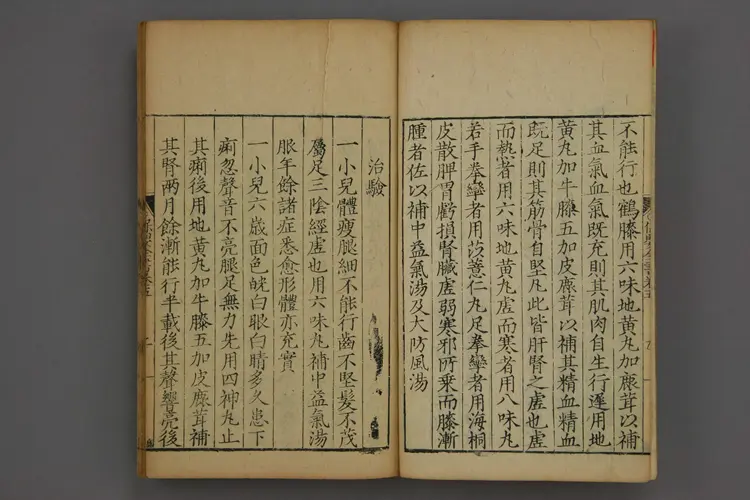 不能行也鶴膝用六味地黄丸加鹿茸以補
其血氣血氣既充則其肌肉自生行遲用地
黄丸加牛膝五加皮鹿茸以補其精血精血
既足則其筋骨自堅凡此皆肝腎之虚也虚
而熱者用六味地黄丸虚而寒者用八味丸
若手拳攣者用薏苡仁丸足拳攣者用海桐
皮散脾胃虧損腎臟虚弱寒邪所乗而膝漸
腫者佐以補中益氣湯及大防風湯
治驗
一小兒體瘦腿細不能行齒不堅髮不茂
屬足三陰經虚也用六味丸補中益氣湯
服年餘諸症悉愈形體亦充實
一小兒六歲面色㿠白眼白睛多久患下
痢忽聲音不亮腿足無力先用四神丸止
其痢後用地黄丸加牛膝五加皮鹿茸補
其腎兩月餘漸能行半載後其聲響亮後